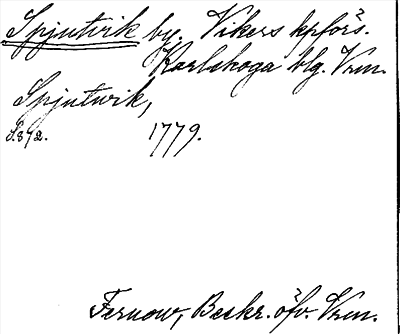 Spjutvik by. Vikers kpförs.
Karlskoga blg. Vrm.
Spjutwik,
S. 872. 1779.
Fernow, Beskr. öfv. Vrm.